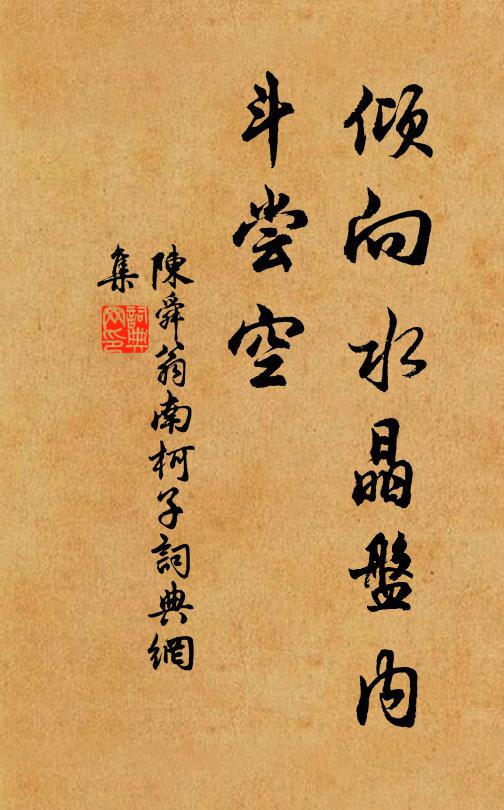 傾向水晶盤内
斗尝空
陳舜翁南柯子詞典網
集
詞典
网印